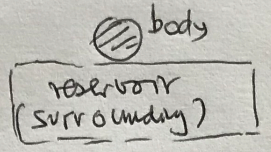 body
reservoir
(surrounding)